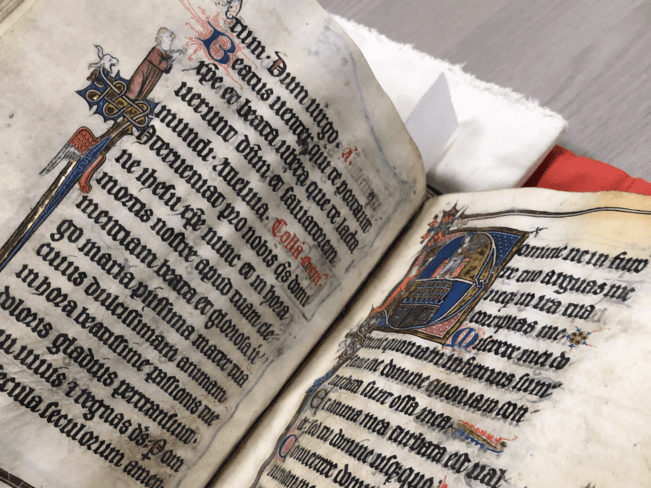 Dum uirgo
Beatus uenter qui te portauit
xpe et beata ubera que te lacta
uerunt dnm et saluatorem
mundi. alleluia. Colla oremus
Interueniat pro nobis qs domi
ne ihesu xpe nunc et in hora
mortis nostre apud tuam cle
mentiam beata et gloriosa
go maria piissima mater tua
cuius animam
in hora passionis tue
doloris gladius pertransiuit
uiuis et regnas ds. Per om
secula seculorum amen
Domine ne in furo
re tuo arguas me
neq in ira tua
corripias me
Miserere mei do
mine quoniam infirmus sum
domine quoniam con
turbata sunt ossa mea
Et anima mea turbata est ual
de sed tu domine usquequo
Conuertere domine